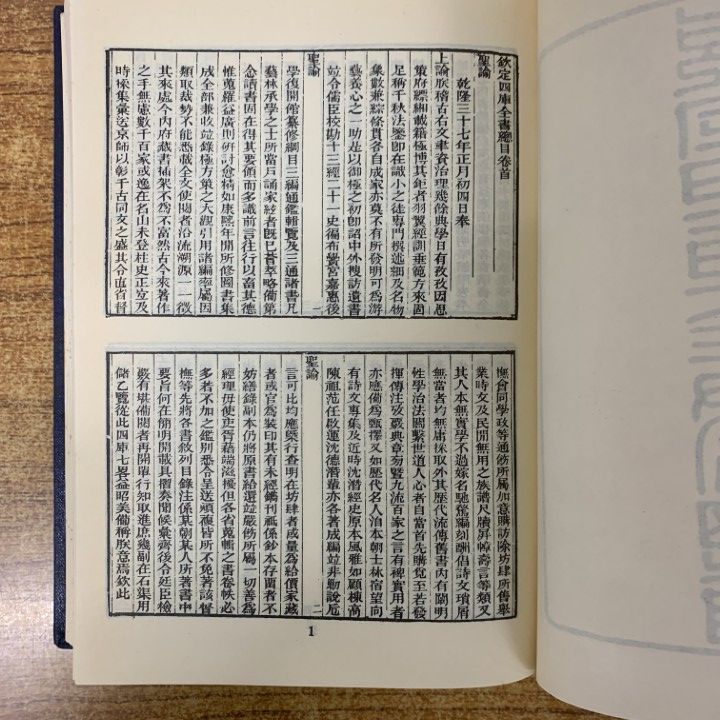 欽定四庫全書總目卷首
聖諭
乾隆三十七年正月初四日奉
上諭朕稽古右文聿資治理幾餘典學日有孜孜因思
策府縹緗載籍極博其鉅者羽翼經訓垂範方來固
足稱千秋法鑒即在識小之徒專門撰述細及名物
象數兼綜條貫各自成家亦莫不有所發明可為游
藝養心之一助是以御極之初即詔中外搜訪遺書
竝令儒臣校勘十三經二十一史徧布黌宮嘉惠後
聖諭
一
學復開館纂修綱目三編通鑑輯覽及三通諸書凡
藝林承學之士所當戶誦家絃者既已薈萃略備第
念讀書固在得其要領而多識前言往行以畜其德
惟蒐羅益廣則研討愈精如康熙年間所修圖書集
成全部兼收竝錄極方策之大觀引用諸編率屬因
類取裁勢不能悉載全文使閱者沿流溯源一一徵
其來處今內府藏書插架不為不富然古今來著作
之手無慮數千百家或逸在名山未登柱史正宜及
時採集彙送京師以彰千古同文之盛其令直省督
撫會同學政等通飭所屬加意購訪除坊肆所售舉
業時文及民間無用之族譜尺牘屏幛壽言等類又
其人本無實學不過嫁名馳騖編刻酬倡詩文瑣屑
無當者均無庸採取外其歷代流傳舊書內有闡明
性學治法關繫世道人心者自當首先購覓至若發
揮傳注攷覈典章旁暨九流百家之言有裨實用者
亦應備為甄擇又如歷代名人洎本朝士林宿望向
有詩文專集及近時沈潛經史原本風雅如顧棟高
陳祖范任啟運沈德潛輩亦各著成編竝非勦說卮
聖諭
二
言可比均應槩行查明在坊肆者或量為給價家藏
者或官為裝印其有未經鐫刊祇係鈔本存留者不
妨繕錄副本仍將原書給還竝嚴飭所屬一切善為
經理毋使吏胥藉端滋擾但各省蒐輯之書卷帙必
多若不加之鑒別悉令呈送煩複皆所不免著該督
撫等先將各書敘列目錄注係某朝某人所著書中
要旨何在簡明開載具摺奏聞候彙齊後令廷臣檢
覈有堪備閱者再開單行知取進庶幾副在石渠用
儲乙覽從此四庫七畧益昭美備稱朕意焉欽此
1